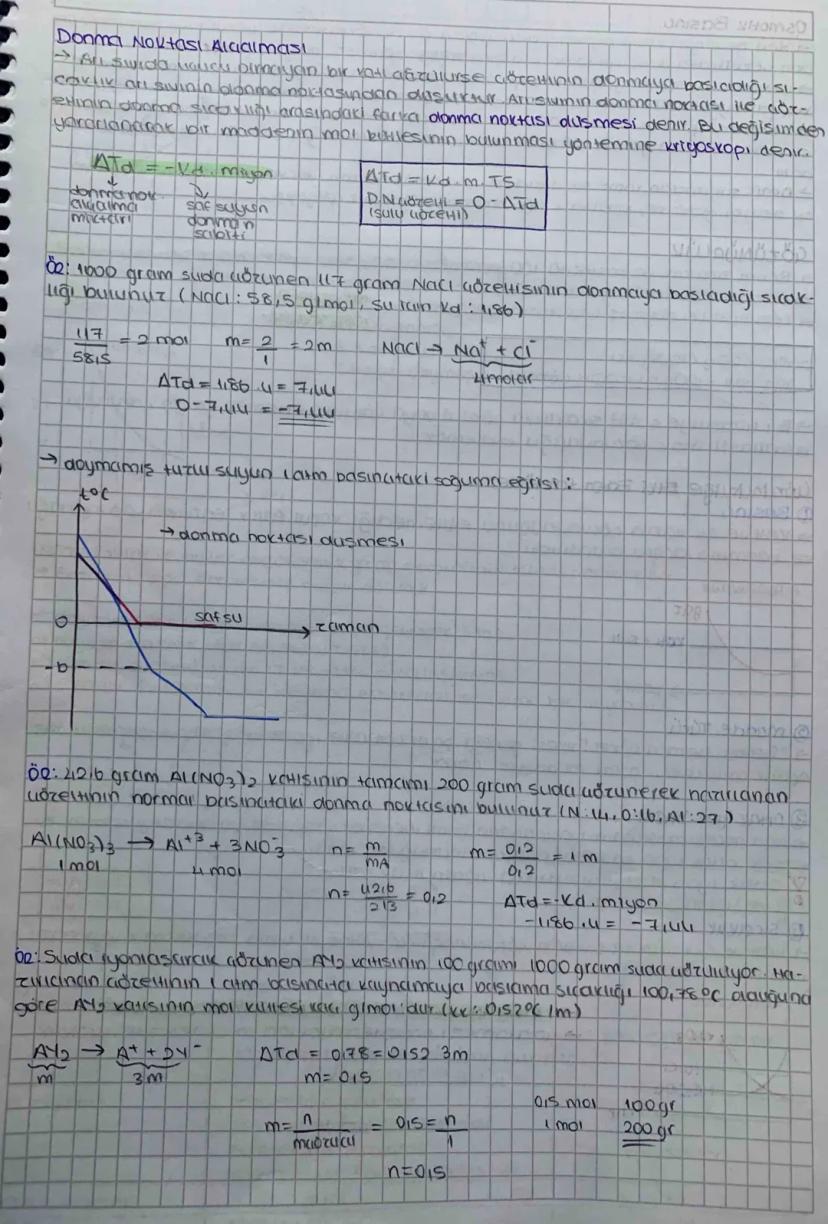 Donma Noktası Alçalması
→ Arı suda uçucu olmayan bir katı çözülürse çözeltinin donmaya başladığı sı-
caklık arı suyun donma noktasından düşüktür. Arı suyun donma noktası ile çöz-
eltinin donma sıcaklığı arasındaki farka donma noktası düşmesi denir. Bu değişimden
yararlanarak bir maddenin mol kütlesinin bulunması yöntemine kriyoskopi denir.
ΔTd = -Kd. miyon
donma nok saf suyun
alçalma donman
miktarı sabiti
ΔTd = Kd. m. TS
D.N çözelti = 0 - ΔTd
(sulu çözelti)
Ö2: 1000 gram suda çözünen 117 gram NaCl çözeltisinin donmaya başladığı sıcak-
lığı bulunuz (NaCl: 58,5 g/mol, su için Kd: 1,86)
117/58,5 = 2 mol m= 2/1 = 2m NaCl → Na⁺ + Cl⁻
4molar
ΔTd = 1,86 . 4 = 7,44
0 - 7,44 = -7,44
→ doymamış tuzlu suyun 1 atm basınçtaki soğuma eğrisi:
t°C
→ donma noktası düşmesi
saf su
0 zaman
-b
Ö2: 42,6 gram Al(NO3)2 katısının tamamı 200 gram suda çözünerek hazırlanan
çözeltinin normal basınçtaki donma noktasını bulunuz (N:14, O:16, Al:27)
Al(NO3)3 → Al⁺³ + 3NO3⁻ n= m/mA m= 0,2/0,2 = 1 m
1 mol 4 mol
n= 42,6/213 = 0,2 ΔTd = -Kd. miyon
-1,86 .4 = -7,44
Ö2: Suda iyonlaşarak çözünen AY2 katısının 100 gramı 1000 gram suda çözülüyor. Ha-
zırlanan çözeltinin 1 atm basınçta kaynamaya başlama sıcaklığı 100,78°C olduğuna
göre AY2 katısının mol kütlesi kaç g/mol'dur (kk: 0,52°C/m)
AY2 → A⁺ + 2Y⁻ ΔTd = 0,78 = 0,52 3m
m 3m m = 0,5
m= n/mçözücü = 0,5 = n/1
0,5 mol 100gr
1 mol 200 gr
n=0,5